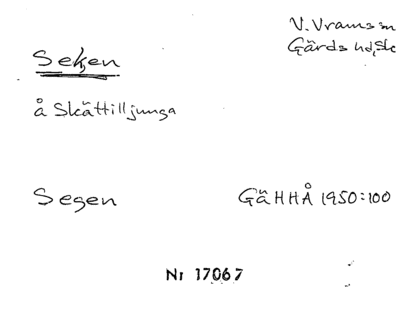 V. Vrams sn
Gärds hd, Sk
Seken
å Skättilljunga
Segen GäHHÅ 1950:100
Nr 17067